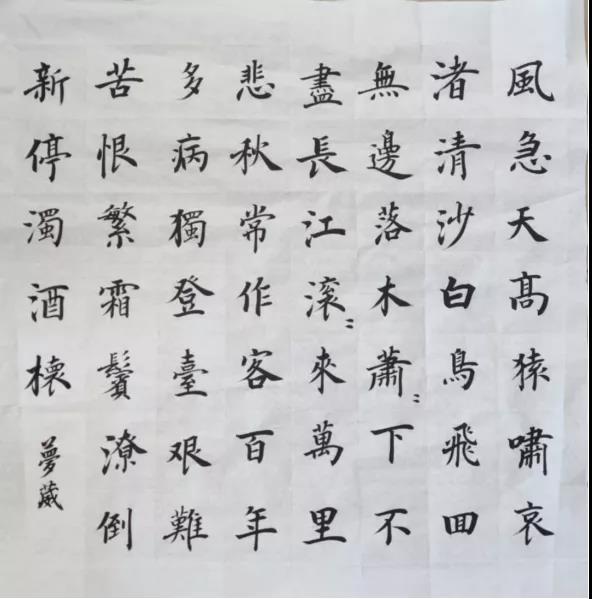 風急天髙猿嘯哀
渚清沙白鳥飛回
無邊落木蕭〻下不
盡長江滾〻來萬里
悲秋常作客百年
多病獨登臺艱難
苦恨繁霜鬢潦倒
新停濁酒櫰
夢葳